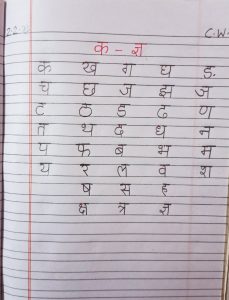 C.W.
क - ज्ञ
क ख ग घ ङ
च छ ज झ ञ
ट ठ ड ढ ण
त थ द ध न
प फ ब भ म
य र ल व श
ष स ह
क्ष त्र ज्ञ